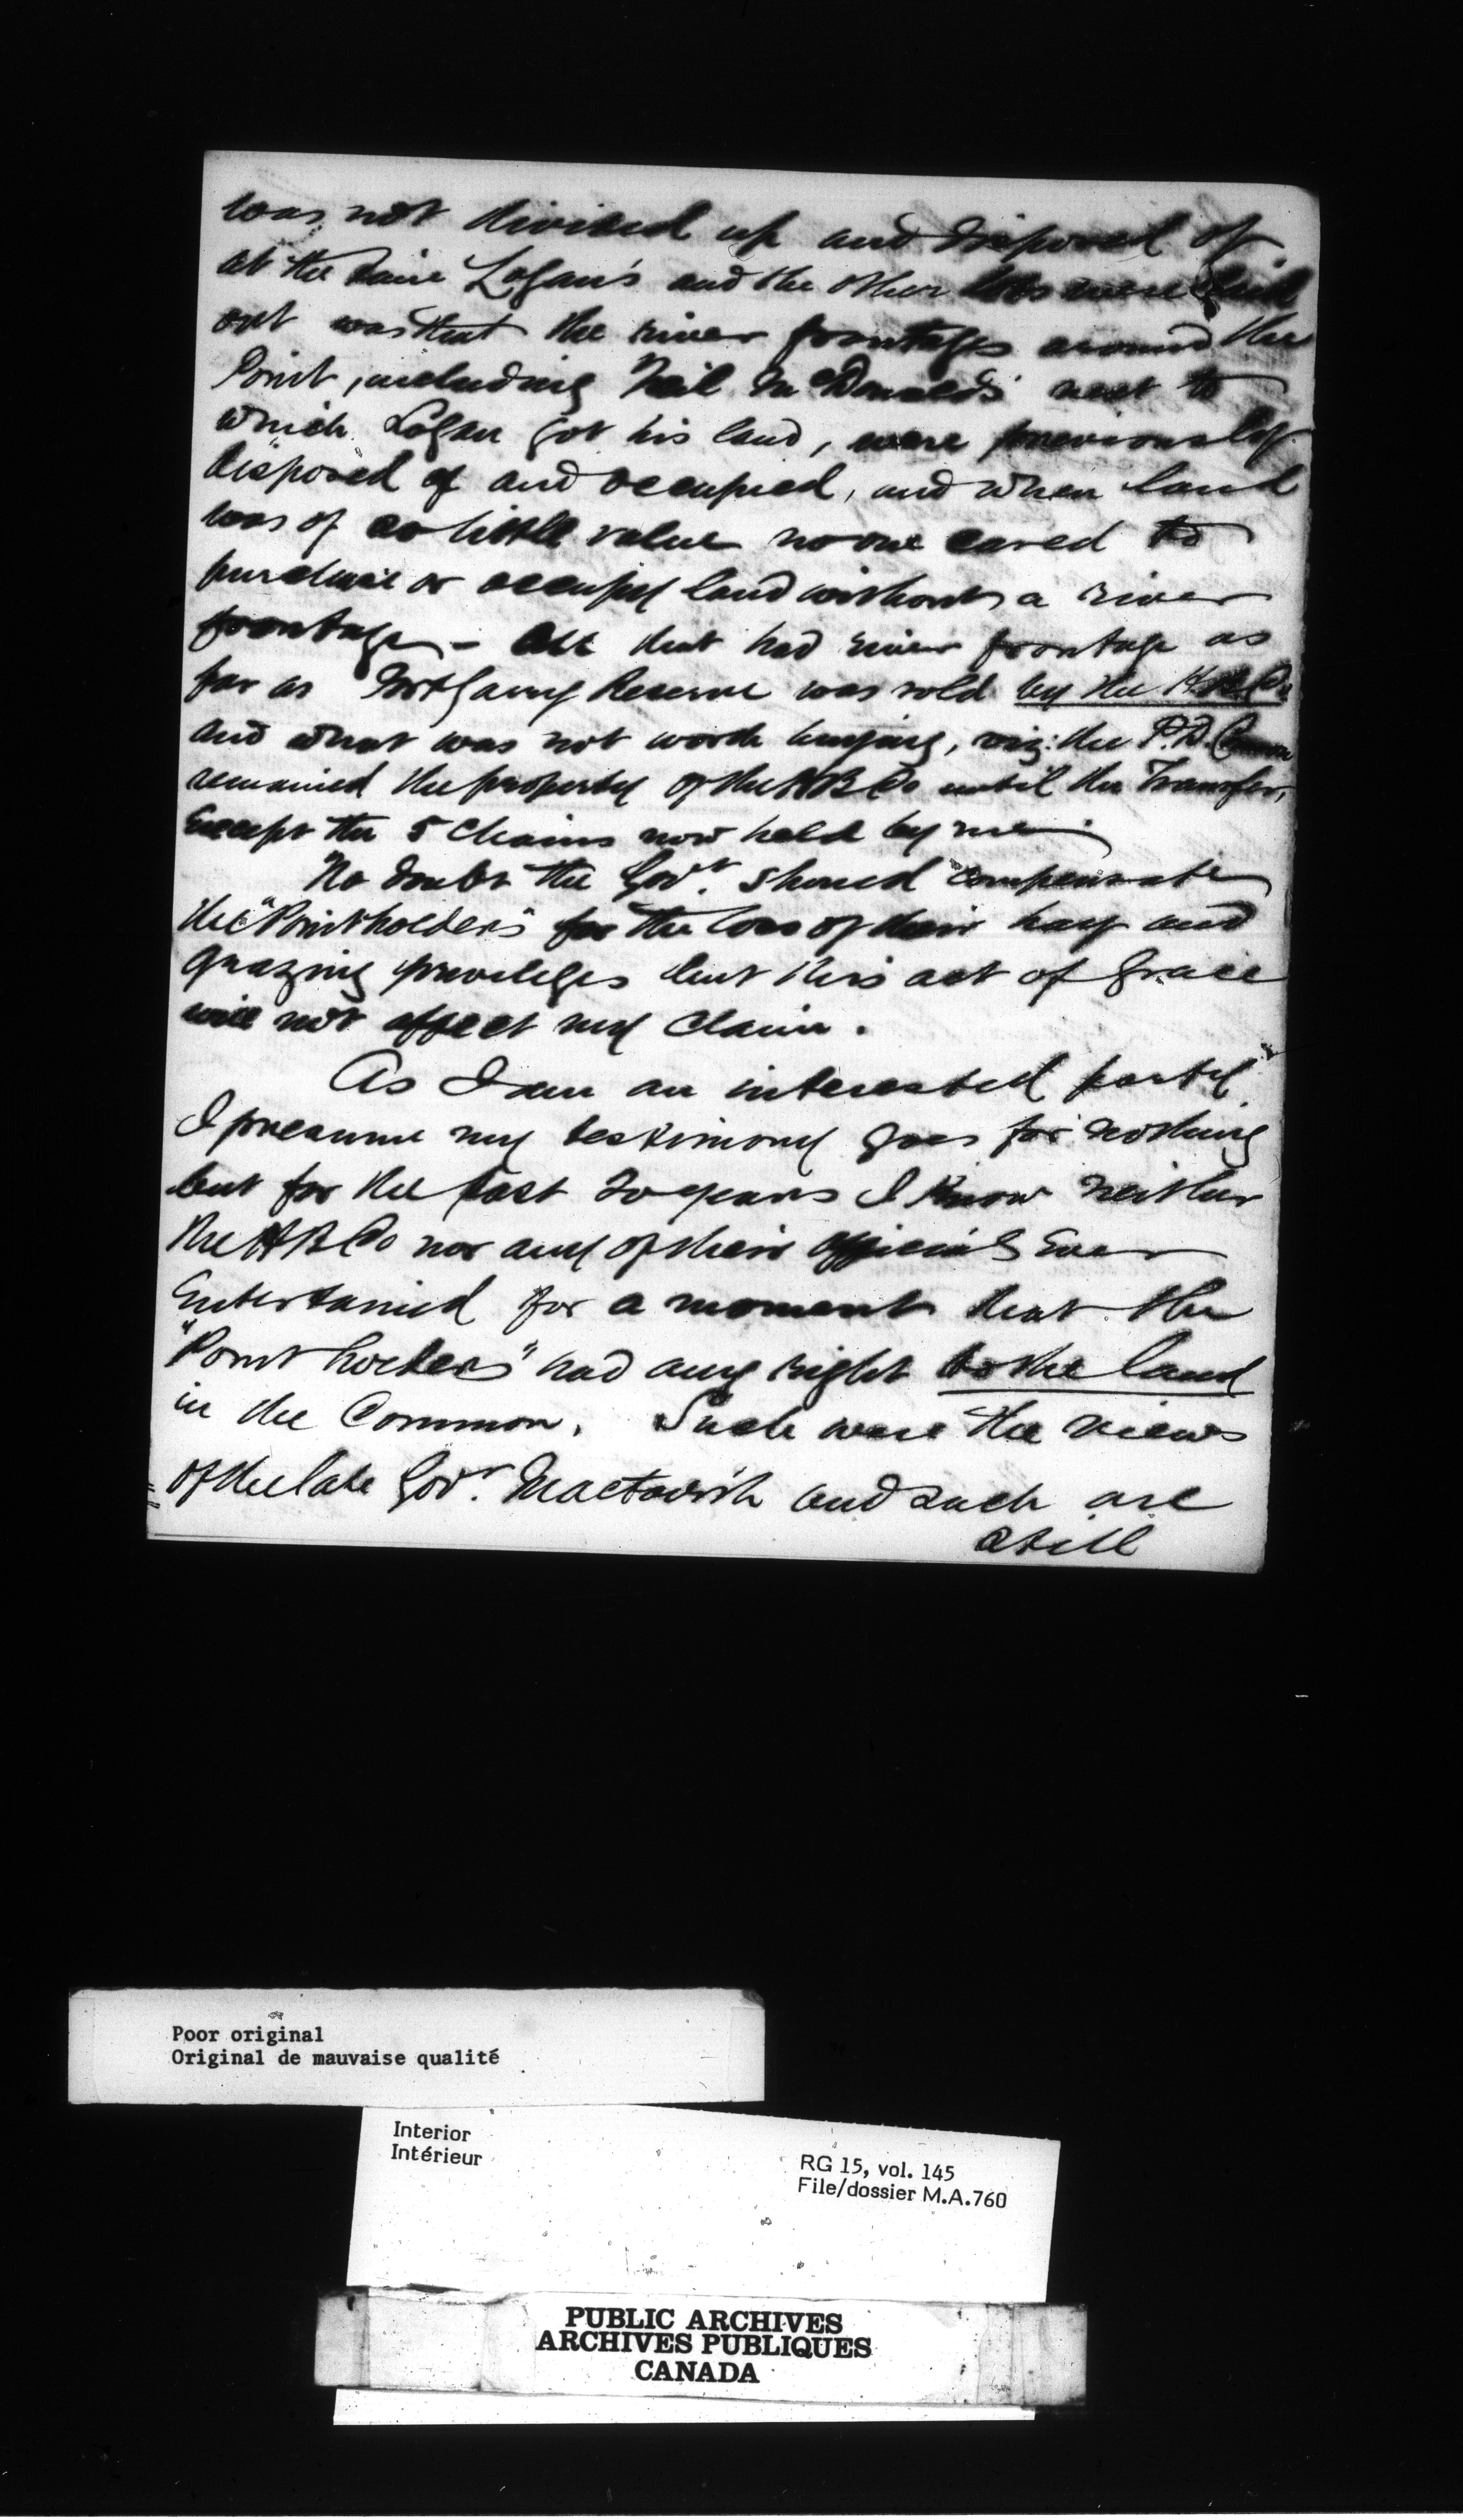 was not divided up and disposed of
at the time Logan's and the other lots were laid
out was that the river frontages around the
Point, including Neil McDonald's next to
which Logan got his land, were previously
disposed of and occupied, and when land
was of so little value no one cared to
purchase or occupy land without a river
frontage - All that had river frontage as
far as Fort Garry Reserve was sold by the H.B.Co
and what was not worth buying, viz: the P.D. Common
remained the property of the HBCo until the Transfer,
Except the 5 Chains now held by me.
No doubt the Govt. should compensate
the "Pointholders" for the loss of their hay and
grazing privileges but this act of Grace
will not affect my Claim.
As I am an interested party
I presume my testimony goes for nothing
but for the past 20 years I know neither
the HBCo nor any of their officials Ever
Entertained for a moment that the
"Point holders" had any right to the land
in the Common. Such were the views
of the late Govr. Mactavish and such are
still
Poor original
Original de mauvaise qualité
Interior
Intérieur
RG 15, vol. 145
File/dossier M.A.760
PUBLIC ARCHIVES
ARCHIVES PUBLIQUES
CANADA